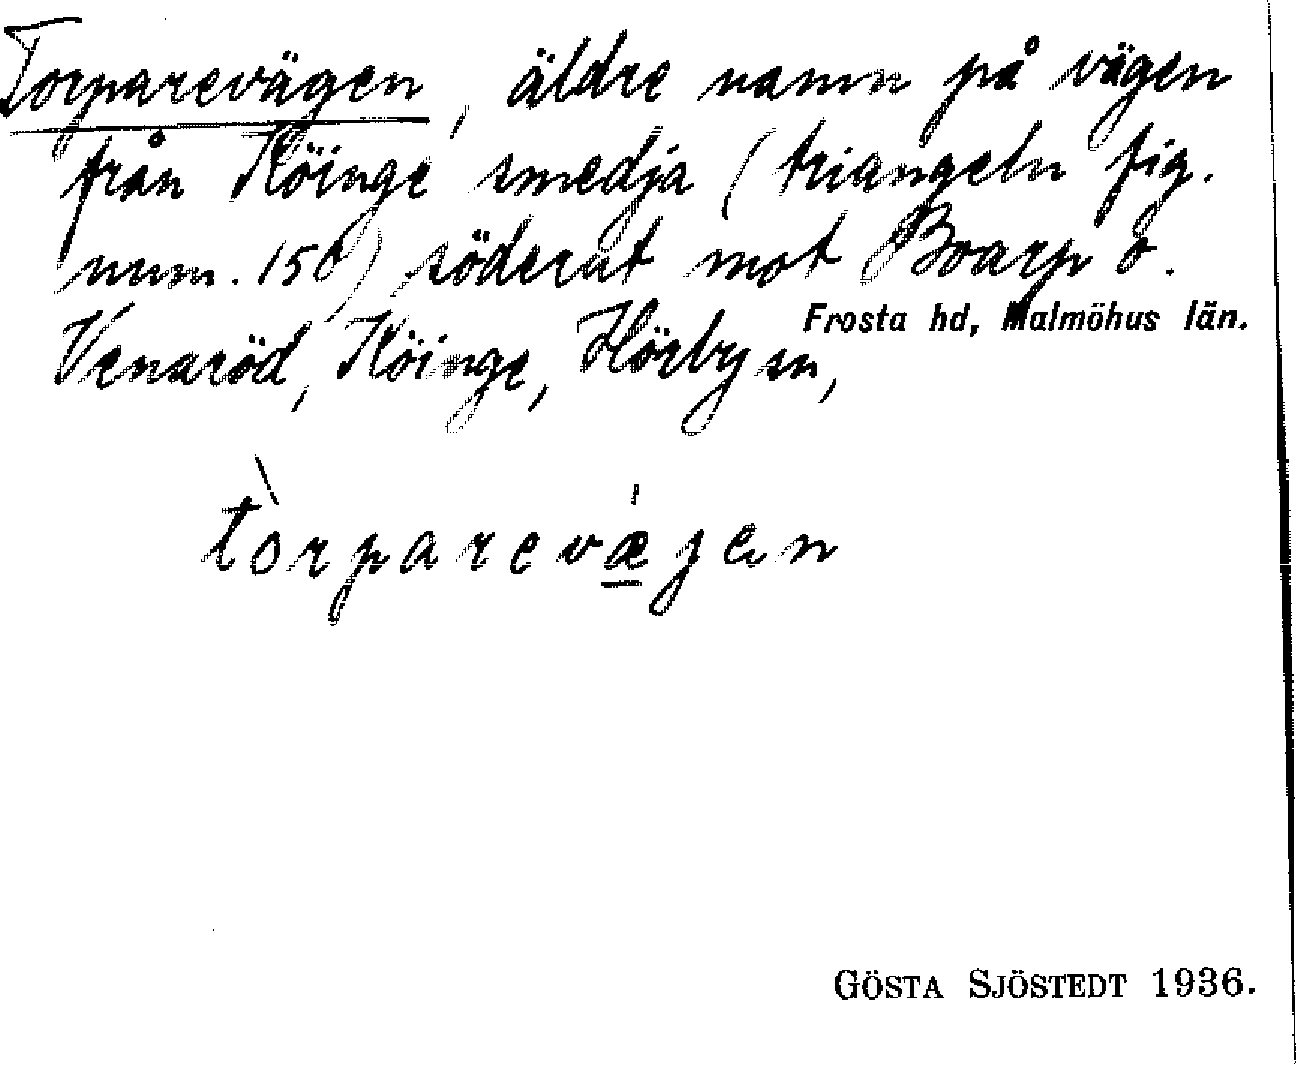 Torparevägen, äldre namn på vägen
från Köinge smedja (triangeln fig.
num. 150) söderut mot Boarp o.
Venaröd, Köinge, Hörby sn, Frosta hd, Malmöhus län.
tòrparevǽ̲gen
GÖSTA SJÖSTEDT 1936.